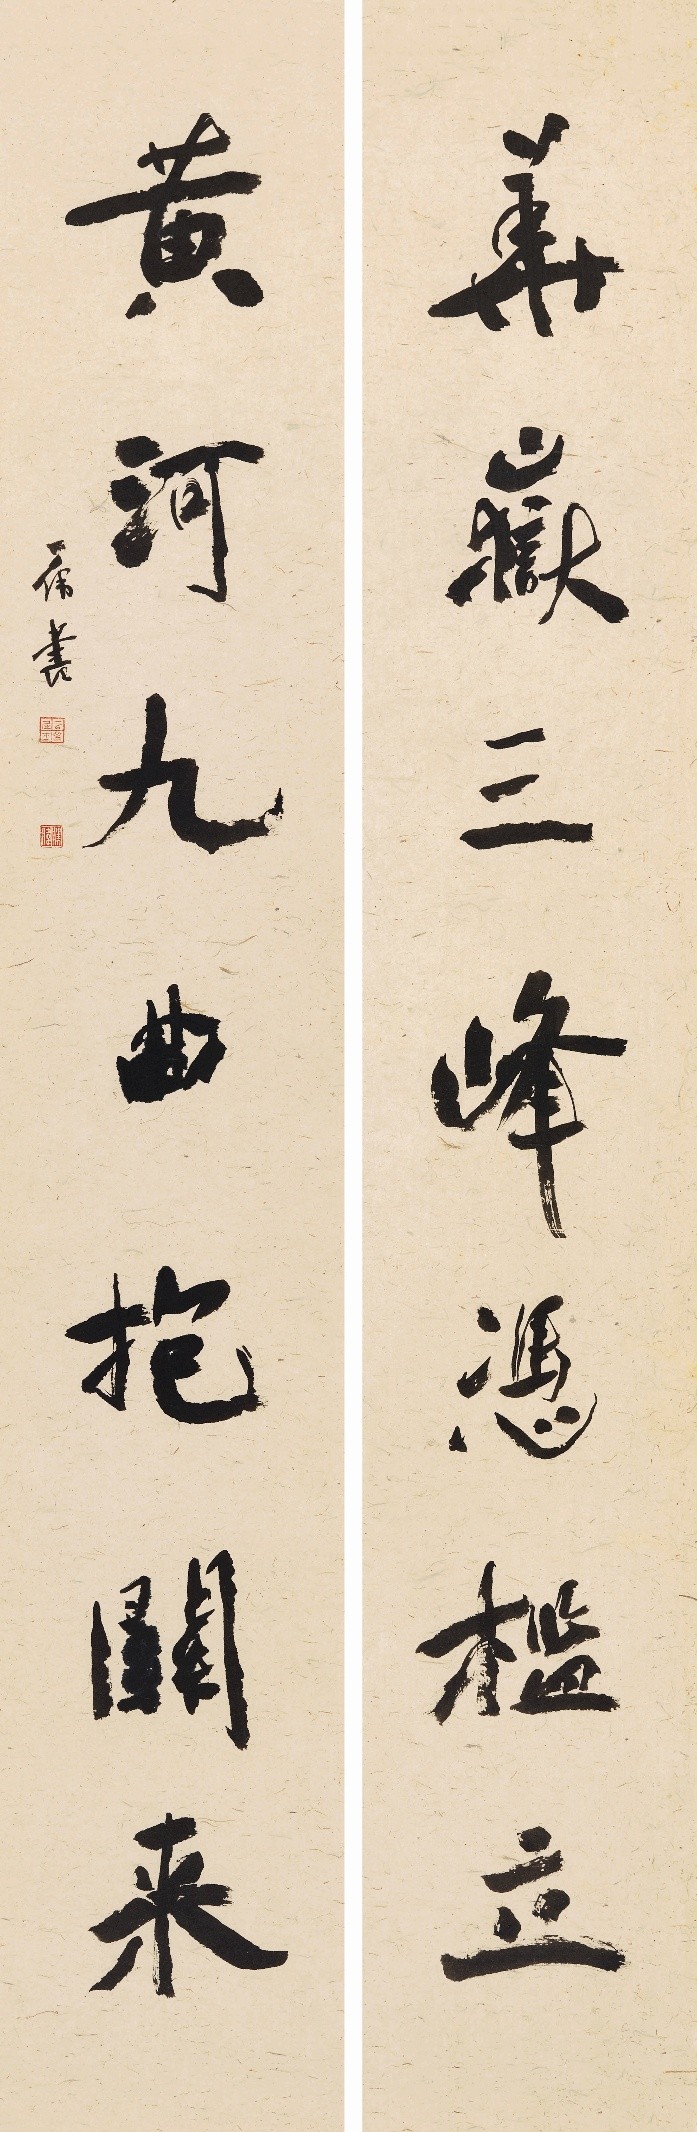 華嶽三峰憑檻立
黃河九曲抱關来
一孺書